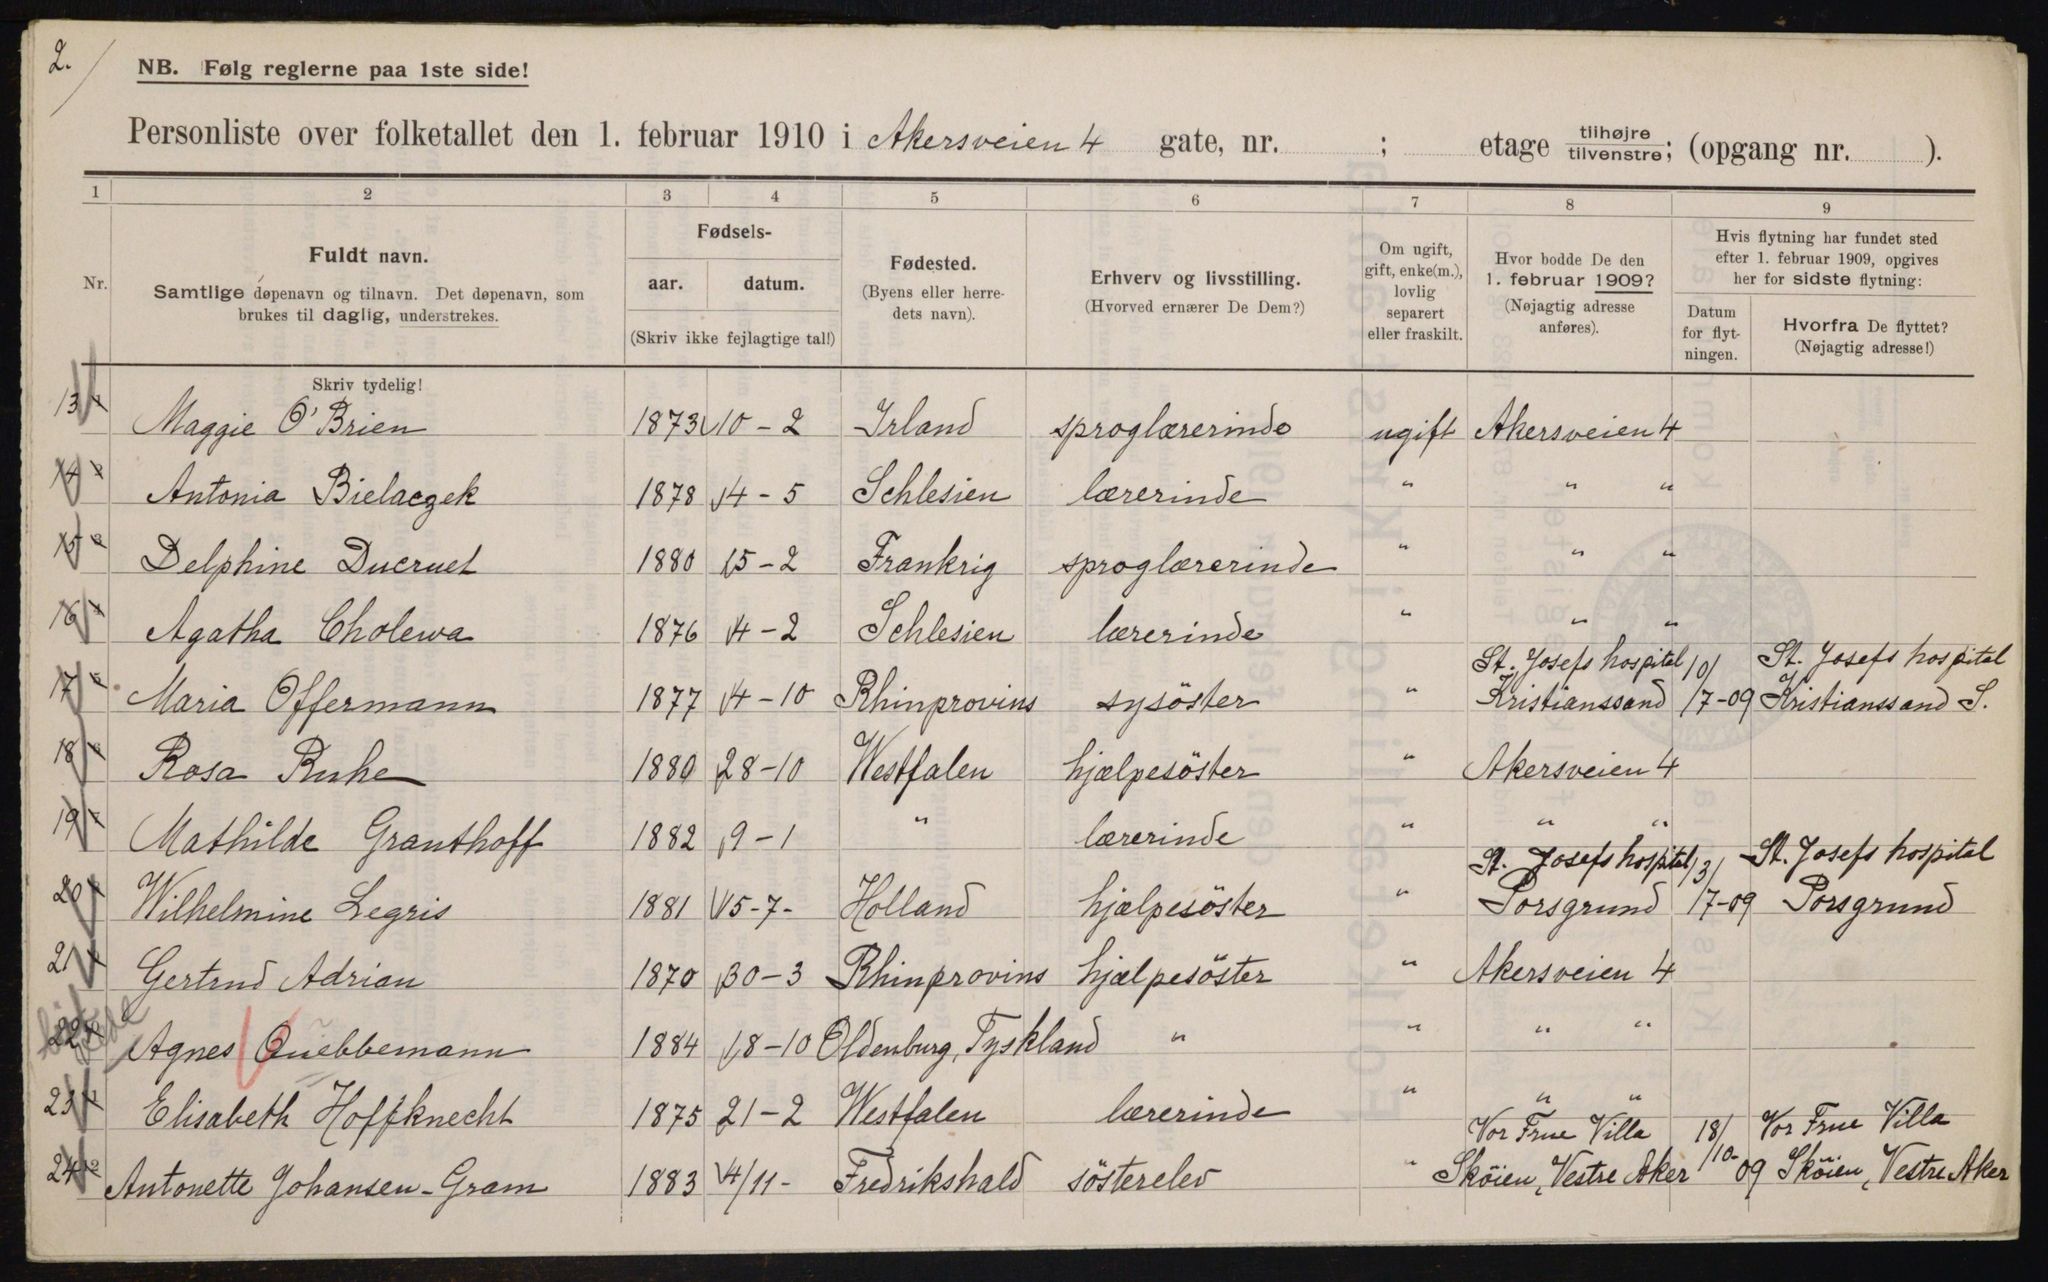 2.
NB. Følg reglerne paa 1ste side!
Personliste over folketallet den 1. februar 1910 i Akersveien 4 gate, nr. ; etage tilhøjre/tilvenstre; (opgang nr. ).
1 2 3 4 5 6 7 8 9
Nr.
Fuldt navn.
Samtlige døpenavn og tilnavn. Det døpenavn, som
brukes til daglig, understrekes.
Skriv tydelig!
Fødsels-
aar. datum.
(Skriv ikke fejlagtige tal!)
Fødested.
(Byens eller herre-
dets navn).
Erhverv og livsstilling.
(Hvorved ernærer De Dem?)
Om ugift,
gift, enke(m.),
lovlig
separert
eller fraskilt.
Hvor bodde De den
1. februar 1909?
(Nøjagtig adresse
anføres).
Hvis flytning har fundet sted
efter 1. februar 1909, opgives
her for sidste flytning:
Datum
for flyt-
ningen.
Hvorfra De flyttet?
(Nøjagtig adresse!)
13 Maggie O'Brien 1873 10-2 Irland sproglærerinde ugift Akersveien 4
14 Antonia Bielaczek 1878 14-5 Schlesien lærerinde " " "
15 Delphine Ducruet 1880 15-2 Frankrig sproglærerinde " " "
16 Agatha Cholewa 1876 14-2 Schlesien lærerinde " " "
St. Josefs hospital 10/ St. Josefs hospital
17 Maria Offermann 1877 14-10 Rhinprovins sysöster " Kristianssand 17-09 Kristianssand S.
18 Rosa Ruhe 1880 28-10 Westfalen hjælpesöster " Akersveien 4
19 Mathilde Granthoff 1882 9-1 " lærerinde " " "
St. Josefs hospital 13/ St. Josefs hospital
20 Wilhelmine Legris 1881 15-7- Holland hjælpesöster " Porsgrund 17-09 Porsgrund
21 Gertrud Adrian 1870 30-3 Rhinprovins hjælpesöster " Akersveien 4
22 Agnes Quebbemann 1884 18-10 Oldenburg, Tyskland " " " "
23 Elisabeth Hoffknecht 1875 21-2 Westfalen lærerinde " " "
Vor Frue Villa 18/ Vor Frue Villa
24 Antonette Johansen-Gram 1883 4/11- Fredrikshald sösterelev " Sköien, Vestre Aker /10-09 Sköien, Vestre Aker